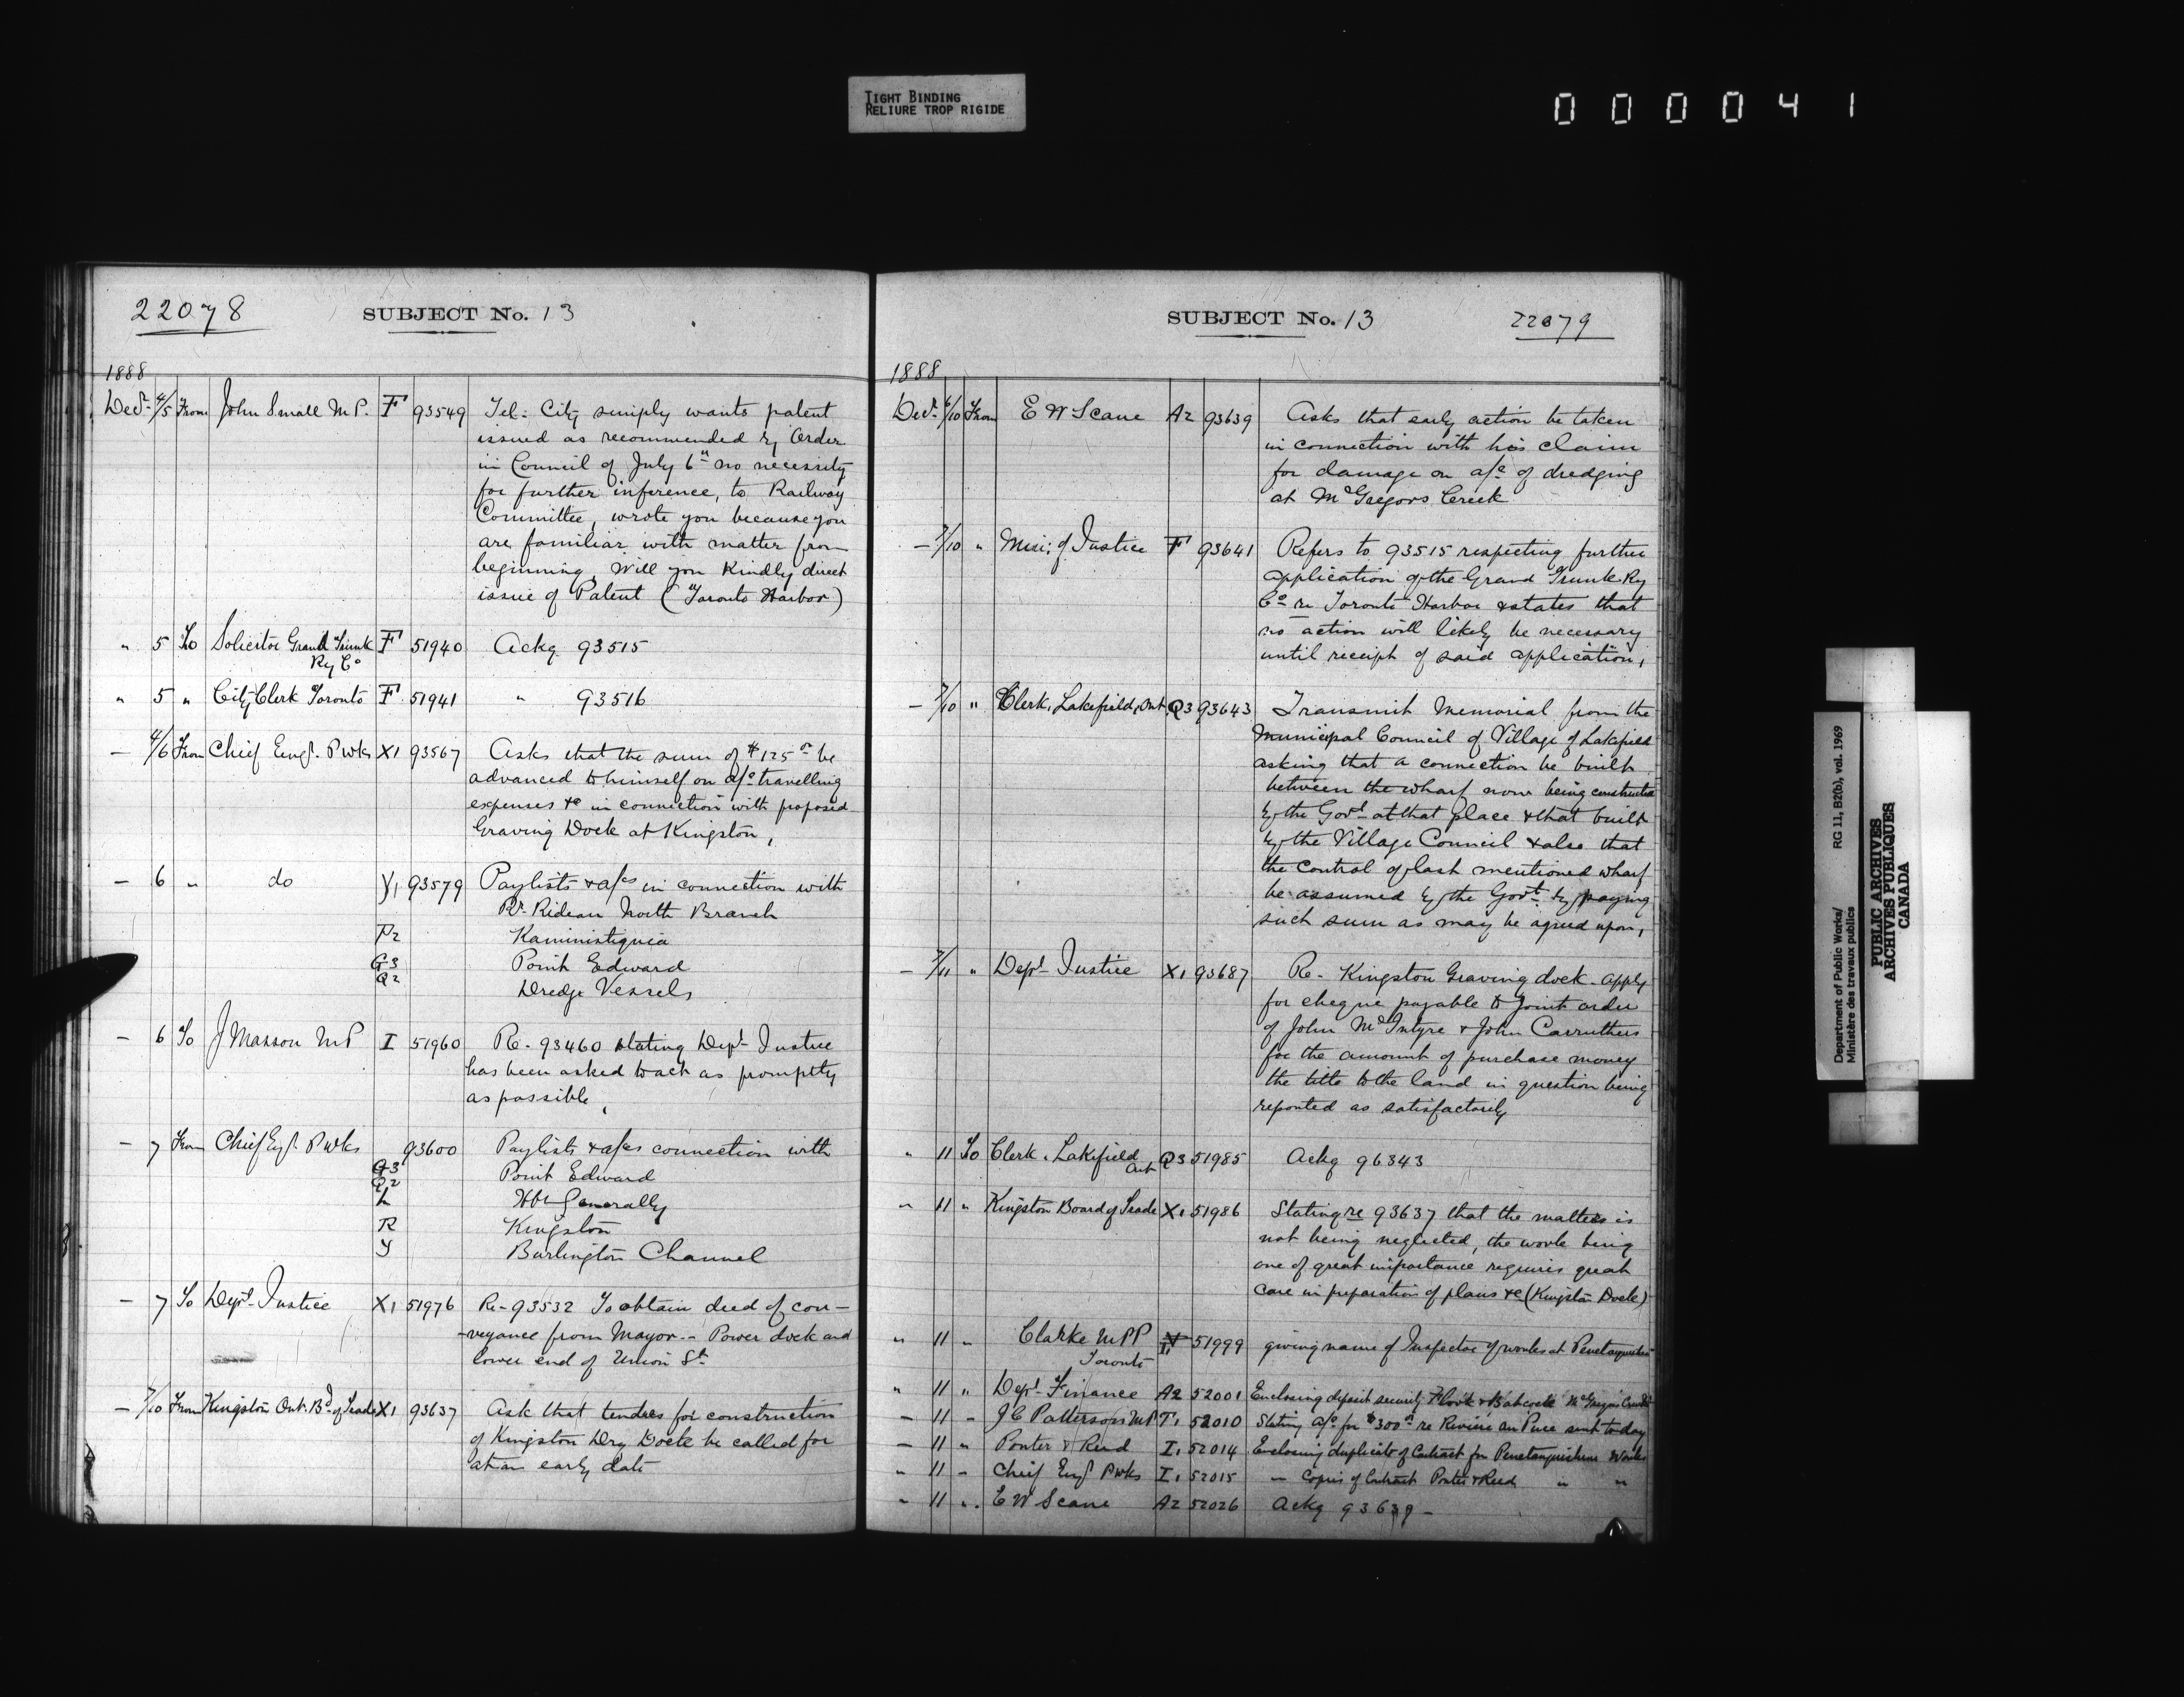 TIGHT BINDING
RELIURE TROP RIGIDE
000041
22078
SUBJECT No. 13
1888
Decr 4/5 From John Small M.P. F 93549 Tel. City simply wants patent
issued as recommended by Order
in Council of July 6th no necessity
for further inference, to Railway
Committee, wrote you because you
are familiar with matter from
beginning, Will you kindly direct
issue of Patent (Toronto Harbor)
" 5 To Solicitor Grand Trunk F 51940 Ackg 93515
Ry Co
" 5 " City Clerk Toronto F 51941 " 93516
— 4/6 From Chief Engr. P Wks X1 93567 Asks that the sum of $125 00 be
advanced to himself on a/c travelling
expenses &c in connection with proposed
Graving Dock at Kingston,
— 6 " do Y1 93579 Paylists & a/cs in connection with
Rr. Rideau North Branch
P2 Kaministiquia
G3 Point Edward
Q2 Dredge Vessels
— 6 To J Masson MP I 51960 Re - 93460 stating Dept Justice
has been asked to act as promptly
as possible,
— 7 From Chief Engr. P Wks 93600 Paylists & a/cs connection with
G3 Point Edward
Q2
L Hbr Generally
R Kingston
Y Burlington Channel
— 7 To Dept Justice X1 51976 Re - 93532 To obtain deed of con-
-veyance from Mayor - Power dock and
lower end of Union St.
— 7/10 From Kingston Ont. Bd. of Trade X1 93637 Ask that tenders for construction
of Kingston Dry Dock be called for
at an early date
SUBJECT No. 13
22079
1888
Decr. 6/10 From E W Scane A2 93639 Asks that early action be taken
in connection with his claim
for damage on a/c of dredging
at McGregors Creek
— 7/10 " Mini: of Justice F 93641 Refers to 93515 respecting further
application of the Grand Trunk Ry
Co re Toronto Harbor & states that
no action will likely be necessary
until receipt of said application,
— 7/10 " Clerk, Lakefield, Ont. Q3 93643 Transmit Memorial from the
Municipal Council of Village of Lakefield
asking that a connection be built
between the wharf now being constructed
by the Govt at that place & that built
by the Village Council & also that
the control of last mentioned wharf
be assumed by the Govt. by paying
such sum as may be agreed upon,
— 7/11 " Dept Justice X1 93687 Re - Kingston Graving dock - apply
for cheque payable to joint order
of John McIntyre & John Carruthers
for the amount of purchase money
the title to the land in question being
reported as satisfactorily
" 11 To Clerk, Lakefield Q3 51985 Ackg 96343
Ont
" 11 " Kingston Board of Trade X1 51986 Stating re 93637 that the matter is
not being neglected, the work being
one of great importance requires great
care in preparation of plans &c (Kingston Dock)
" 11 " Clarke MPP 51999 giving name of Inspector of works at Penetanguishene
Toronto
" 11 " Dept Finance A2 52001 Enclosing deposit security Flook & Babcock McGregors Creek
— 11 " J C Patterson MP T1 52010 Stating a/c for $300 00 re Riviere au Puce sent today
— 11 " Porter & Reid I1 52014 Enclosing duplicate of Contract for Penetanguishene Works
" 11 " Chief Engr P Wks I1 52015 — Copies of Contract Porter & Reid " "
" 11 " E W Scane A2 52026 Ackg 93639 —
Department of Public Works/ RG 11, B2(b), vol. 1969
Ministère des travaux publics
PUBLIC ARCHIVES
ARCHIVES PUBLIQUES
CANADA